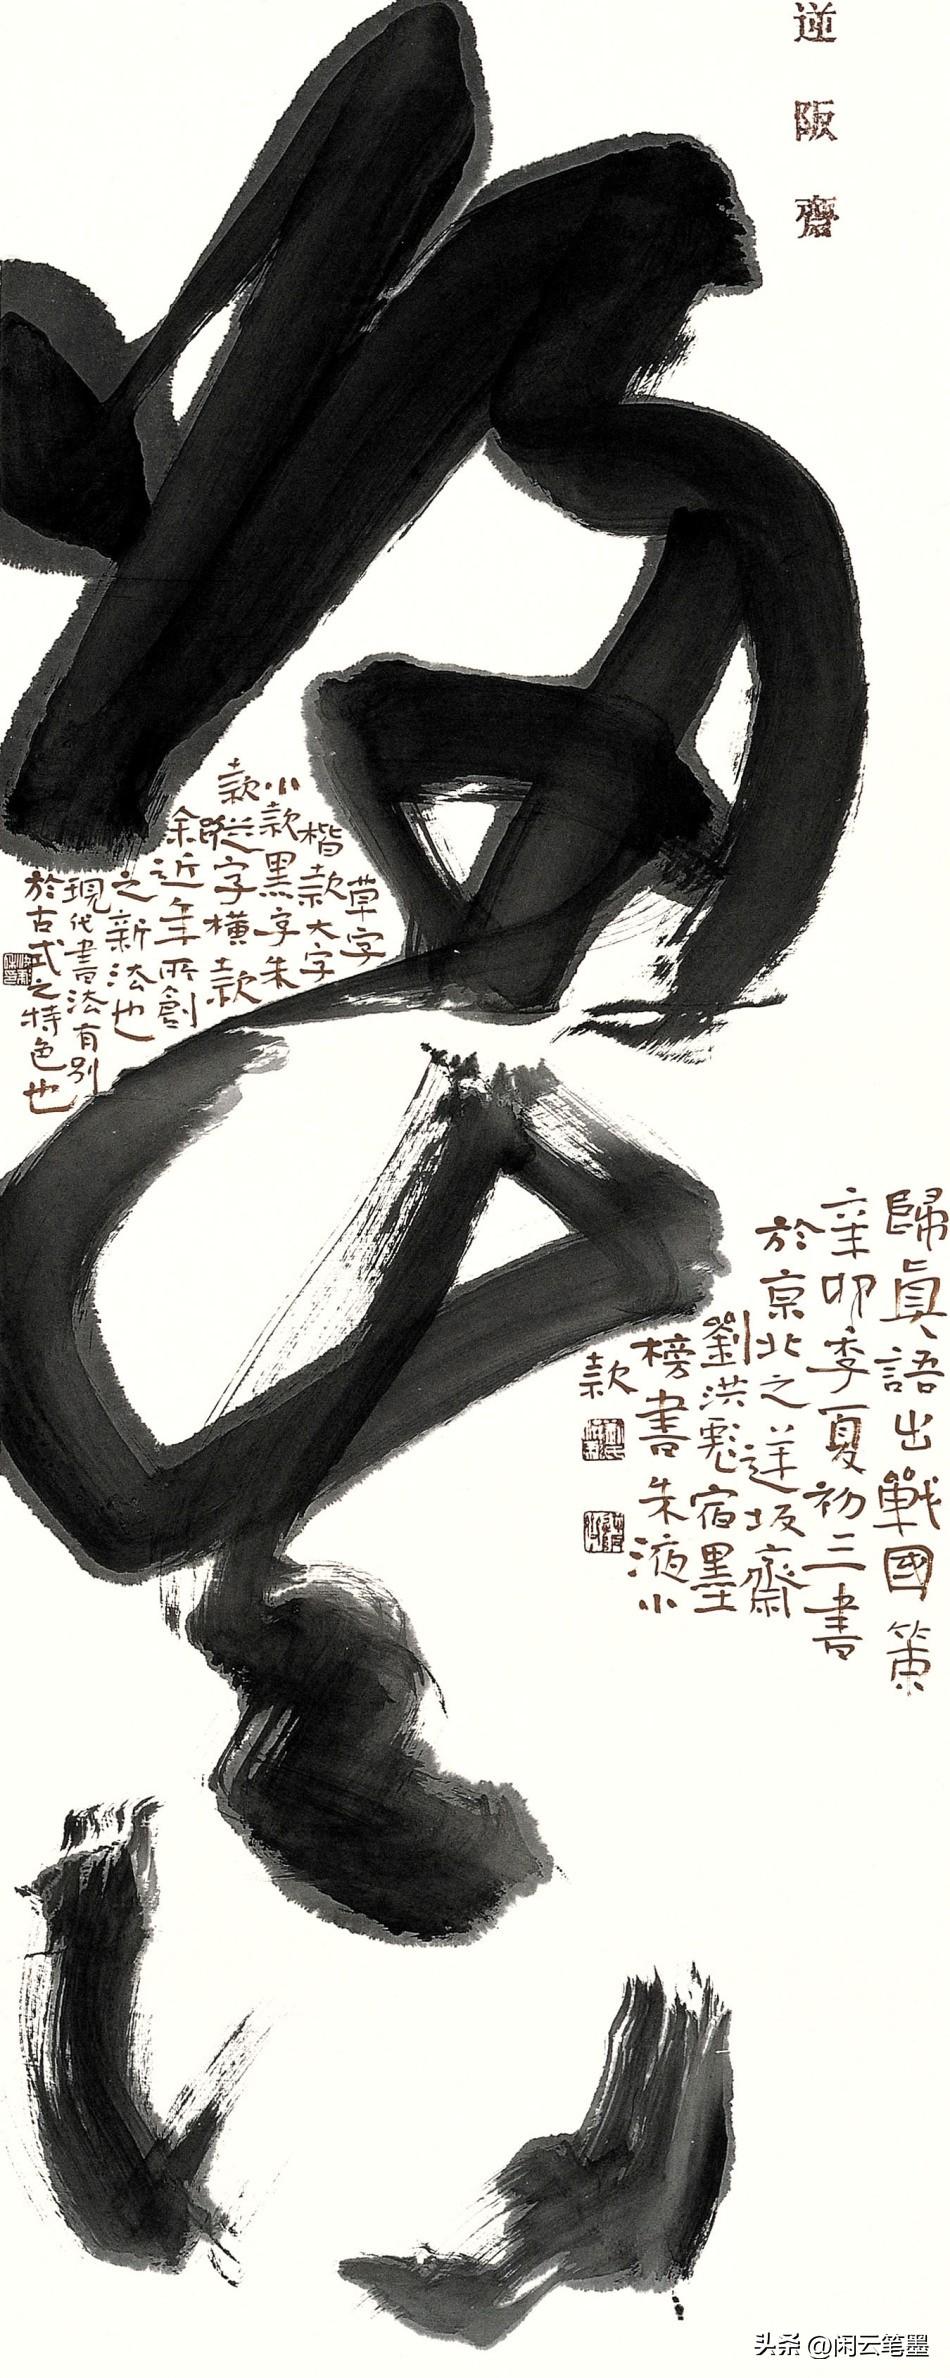 逆阪齋
歸真語出戰國策
辛卯季夏初三書
於京北之逆坂齋
劉洪彪宿墨
榜書朱液小
款
草字
楷款大字
小款黑字朱
款縱字橫款
余近年所創
之新法也
現代書法有別
於古式之特色也
头条 @闲云笔墨